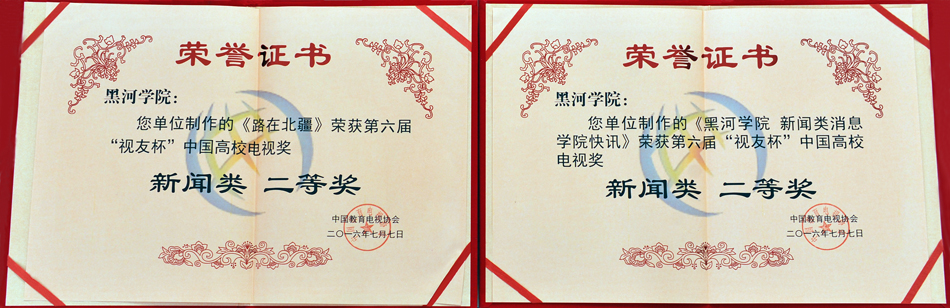 荣誉证书
黑河学院：
您单位制作的《路在北疆》荣获第六届
“视友杯”中国高校电视奖
新闻类 二等奖
中国教育电视协会
二〇一六年七月七日
荣誉证书
黑河学院：
您单位制作的《黑河学院 新闻类消息
学院快讯》荣获第六届“视友杯”中国高校
电视奖
新闻类 二等奖
中国教育电视协会
二〇一六年七月七日